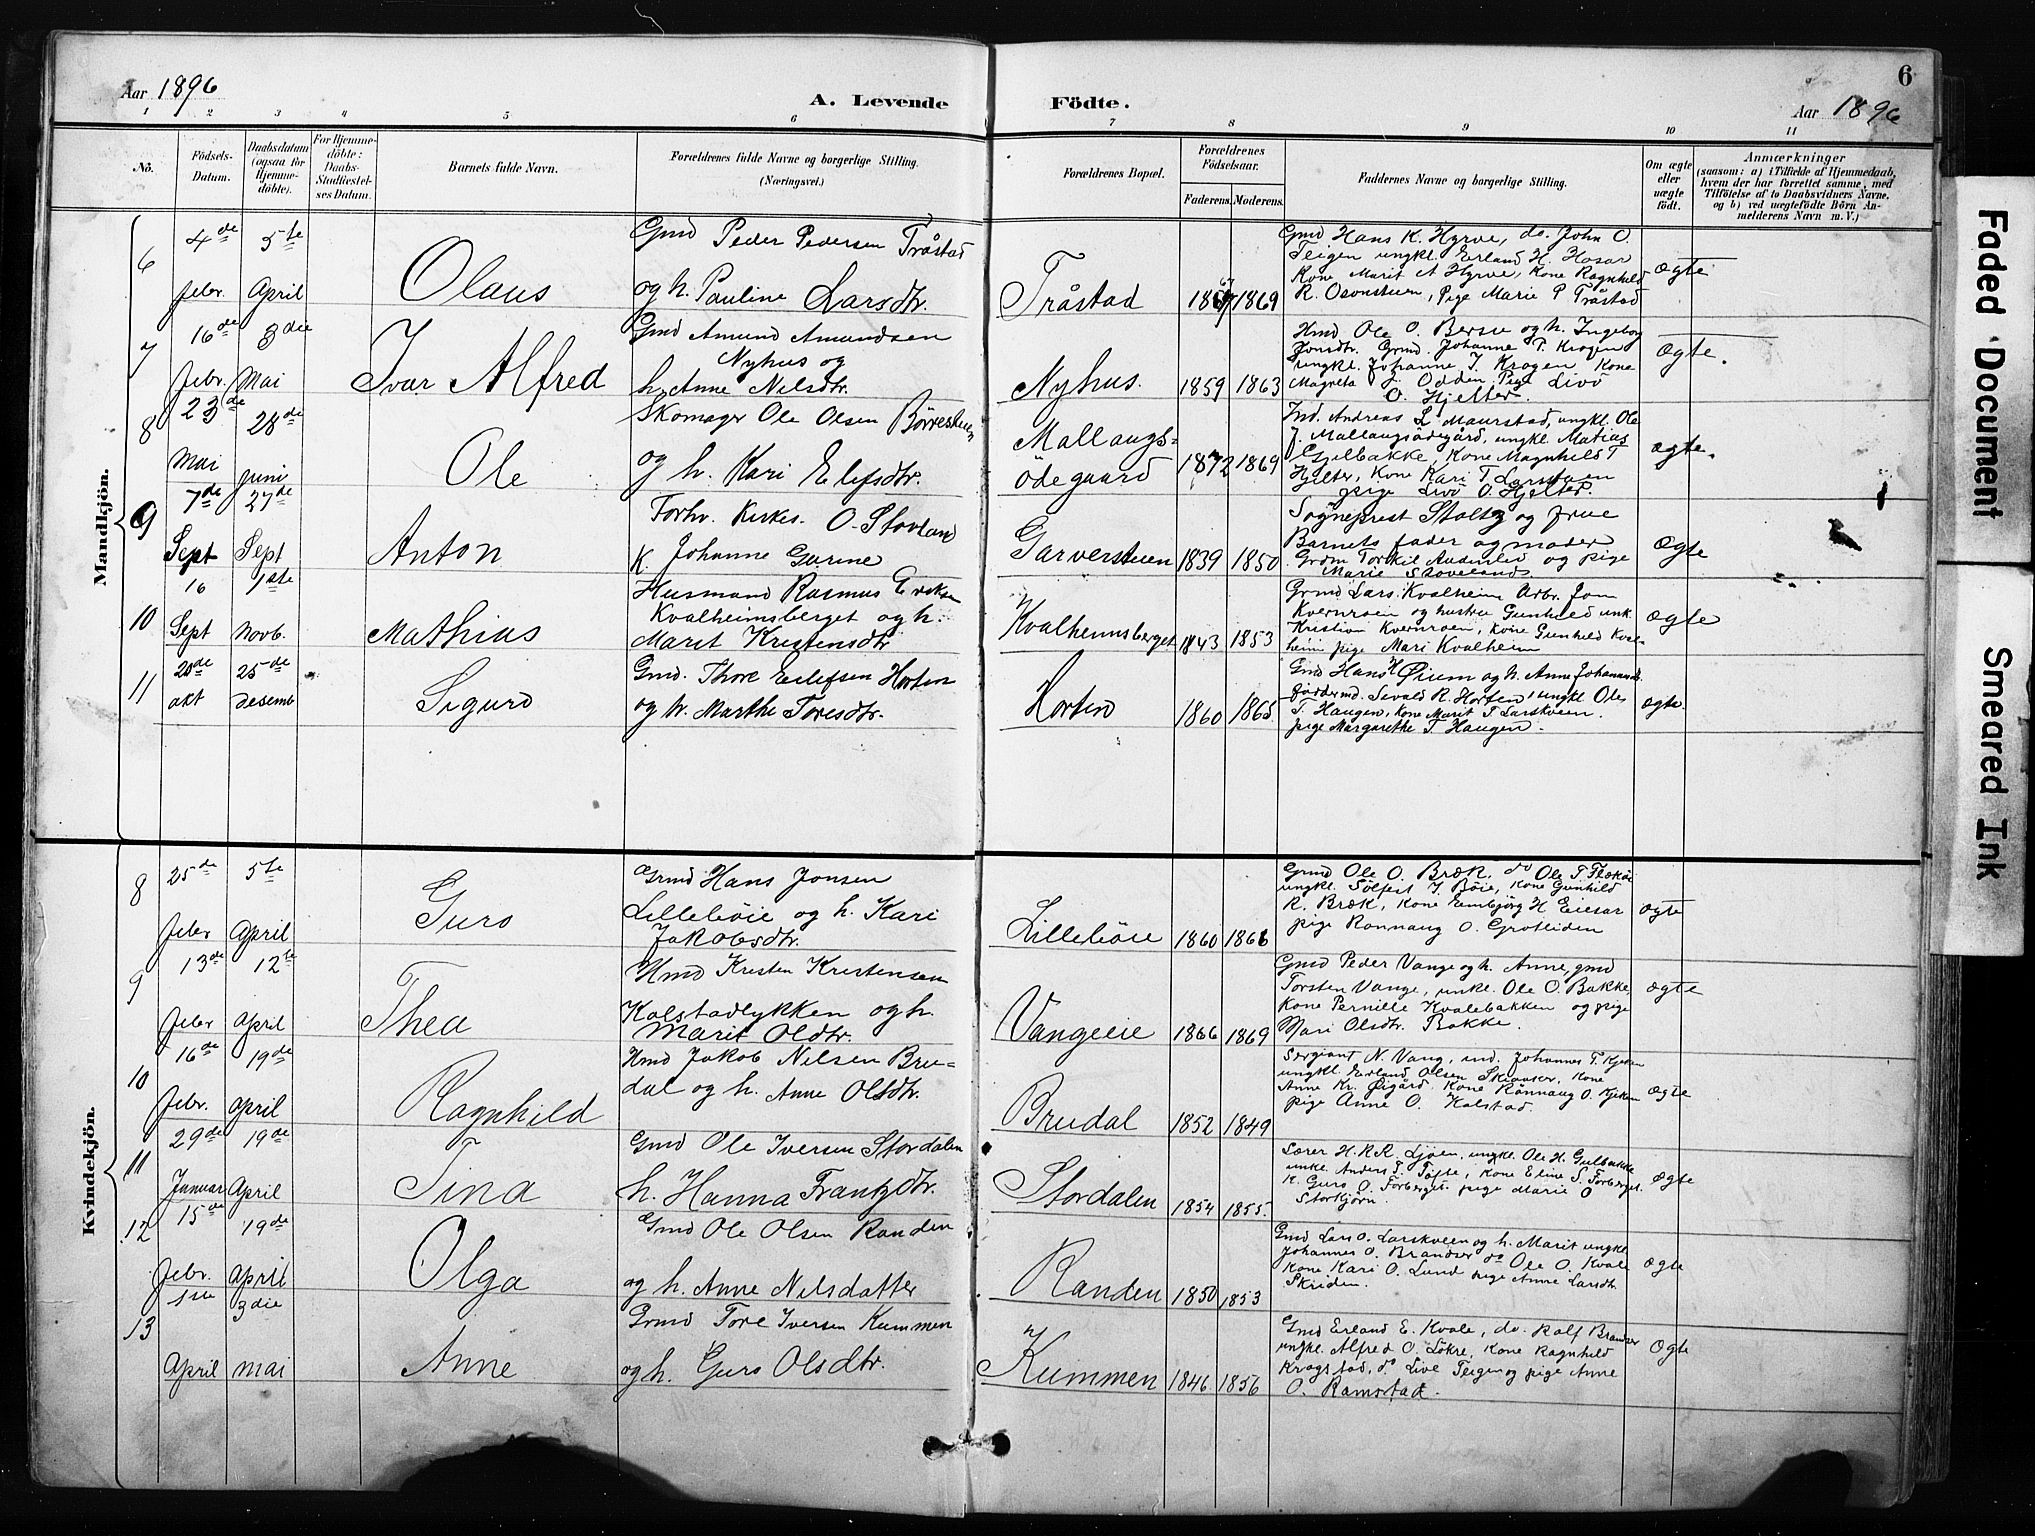 Aar 1896
A. Levende Födte.
Aar 1896
6
1 2 3 4 5 6 7 8 9 10 11
No.
Födsels-
Datum.
Daabsdatum
(ogsaa for
Hjemme-
döbte).
For Hjemme-
döbte:
Daabs-
Stadfæstel-
ses Datum.
Barnets fulde Navn.
Forældrenes fulde Navne og borgerlige Stilling.
(Næringsvei.)
Forældrenes Bopæl.
Forældrenes
Födselsaar.
Faderens. Moderens.
Faddernes Navne og borgerlige Stilling.
Om ægte
eller
uægte
födt.
Anmærkninger
(saasom: a) i Tilfælde af Hjemmedaab,
hvem der har forrettet samme, med
Tilföielse af to Daabsvidners Navne,
og b) ved uægtefödte Börn An-
melderens Navn m. V.)
Mandkjön.
6
4de Febr
5te April
Olaus
Gmd Peder Pedersen Tråstad
og h. Pauline Larsdtr.
Tråstad
1867 1869
Gmd Hans K. Hyrve, do. John O.
Teigen ungkl. Erland H. Hosar
Kone Marit A Hyrve, Kone Ragnhild
R. Osonstuen, Pige Marie P Tråstad
Ægte
7
16de Febr.
3die Mai
Ivar Alfred
Gmd Amund Amundsen
Nyhus og
h. Anne Nilsdtr.
Nyhus.
1859 1863
Hmd Ole O. Bersu og h. Ingebog
Jonsdtr. Grmd. Johanne T. Krogen
ungkl. Johanne T. Krogen Kone
Magneta J. Odden Pige Livo
O. Hjelter.
Ægte.
8
23de Mai
28de juni
Ole
Skomager Ole Olsen Börrestuen
og h. Kari Elefsdtr.
Mallaugs-
ödegaard
1872 1869
Ind. Andreas L Maurstad, ungkl. Ole
J. Mallaugsödegård, ungkl. Matias
Gjelbakke, Kone Magnhild T
Hjelter, Kone Kari T. Larstuen
pige Livo O. Hjelter.
Ægte.
9
7de Sept
27de Sept
Anton
Forhv. Kirkes. O. Stovland
K. Johanne Gurine
Garverstuen
1839 1850
Sogneprest Stoltz og frue
Barnets fader og moder
Grdm Torkil Aukenlid og pige
Marie Stoveland
Ægte
10
16 Sept
1ste Novb.
Mathias
Husmand Rasmus Eriksen
Kvalheimsberget og h.
Marit Kristensdtr
Kvalheimsberget
1843 1853
Grmd Lars Kvalheim Arbr. Jon
Kvernroen og hustru Gunhild unk.
Kristian Kvernroen, Kone Gunhild Kval-
heim pige Mari Kvalheim
Ægte
11
20de okt
25de desemb
Sigurd
Gmd. Thore Eilefsen Horten
og h. Marthe Toresdtr.
Horten
1860 1865
Gmd Hans H Øium og h. Anne Johannesd.
Gårdermd. Sevald R. Horten, ungkl Ole
T. Haugen, Kone Marit P. Larskveen.
pige Margarethe T Haugen.
Ægte.
Kvindekjön.
8
25de Febr
5te April
Guro
Grmd Hans Jonsen
Lilleböie og h. Kari
Jakobsdtr.
Lilleböie
1860 1866
Grmd Ole O. Bræk. do Ole T. Flækøi
ungkl. Sölfest J. Böie, Kone Gunhild
R. Bræk, Kone Embjörg H Eiesar
pige Ronnaug O. Grotliden
Ægte
9
13de Febr
12te April
Thea
Hmd Kresten Kristensen
Kolstadlykken og h.
Marit Oldtr.
Vangeeie
1866 1869
Gmd Peder Vange og h. Anne, gmd
Torsten Vange, unkl. Ole O. Bakke,
Kone Pernille Kvalebakken og pige
Mari Olsdtr. Bakke.
Ægte
10
16de Febr.
19de April
Ragnhild
Hmd Jakob Nilsen Bru-
dal og h. Anne Olsdtr.
Brudal
1852 1849
Sergiant N. Vang, ind. Johannes T. Kjeken
ungkl. Erland Olsen Skjåker, Kone
Anne Kr. Øigård. Kone Rönnaug O. Kjeken
pige Anne O. Kolstad.
Ægte
11
29de Januar
19de April
Tina
Gmd Ole Iversen Stordalen
h. Hanna Frantzdtr.
Stordalen
1854 1855.
Lærer H.R.R. Ljöen, ungkl. Ole H. Gulbakke
unkl. Anders P. Tofte, Kone Eline S. Forberget.
K. Guro O. Forberget pige Marie O
Storkjörn
Ægte
12
15de Febr.
19de April
Olga
Gmd Ole Olsen Randen
og h. Anne Nilsdatter
Randen
1850 1853
Gmd Lars O. Larskveen og h. Marit ungkl
Johannes O. Brandser do Ole O. Kvale
Kone Kari O. Lund pige Anne Larsdtr.
Skriden.
Ægte
13
1ste April
3die mai
Anne
Grmd Tore Iversen Kummen
og h. Guro Olsdtr.
Kummen
1846 1856
Gmd Erland E. Kvale, do. Rolf Brandser
ungkl. Alfred O. Lökre, Kone Ragnhild
Krogstad, do Live Teigen og pige Anne
O. Ramstad.
Ægte
Faded Document
Smeared Ink